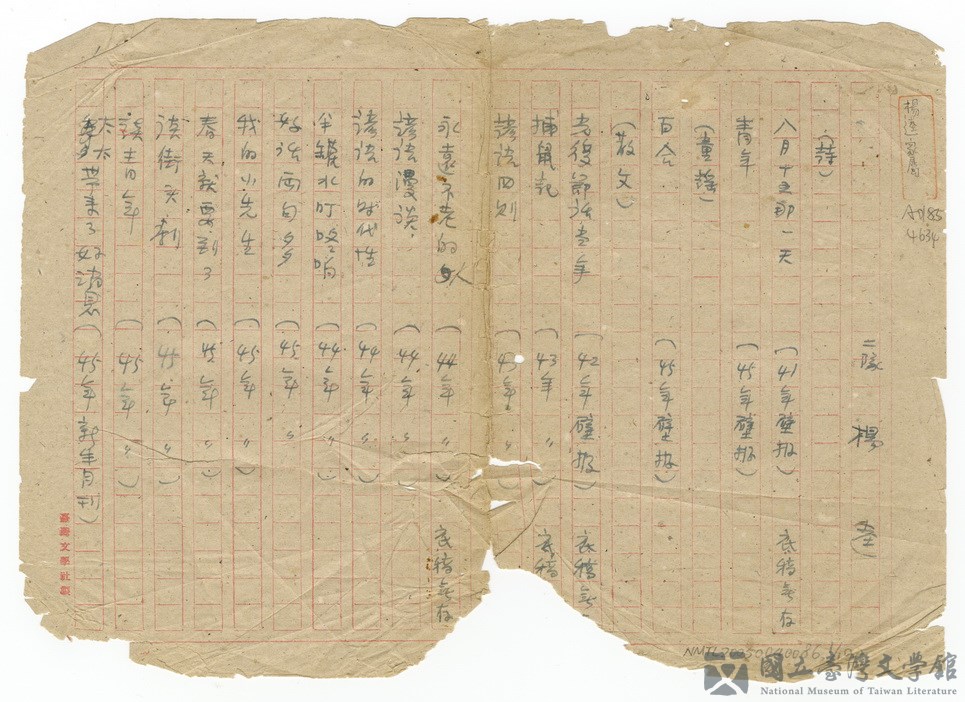 楊逵家屬
AD185
4634
二隊 楊逵
(詩)
八月十五那一天 (41年壁报) 底稿無存
青年 (45年壁报)
(童謠)
百合 (45年壁报)
(散文)
劳復節話当年 (42年壁报) 底稿無
捕鼠記 (43年〃) 底稿
諺語四則 (43年〃)
永遠不老的人 (44年〃) 底稿無存
諺語漫談 (44年〃)
諺語的时代性 (44年〃)
半罐水叮咚响 (44年〃)
好話兩句多 (45年〃)
我的小先生 (45年〃)
春天就要到了 (45年〃)
談街头剧 (45年〃)
談青年 (45年〃)
太太帶來了好消息 (45年新生月刊)
臺灣文學社製
NMTL20050090086
國立臺灣文學館
National Museum of Taiwan Literature